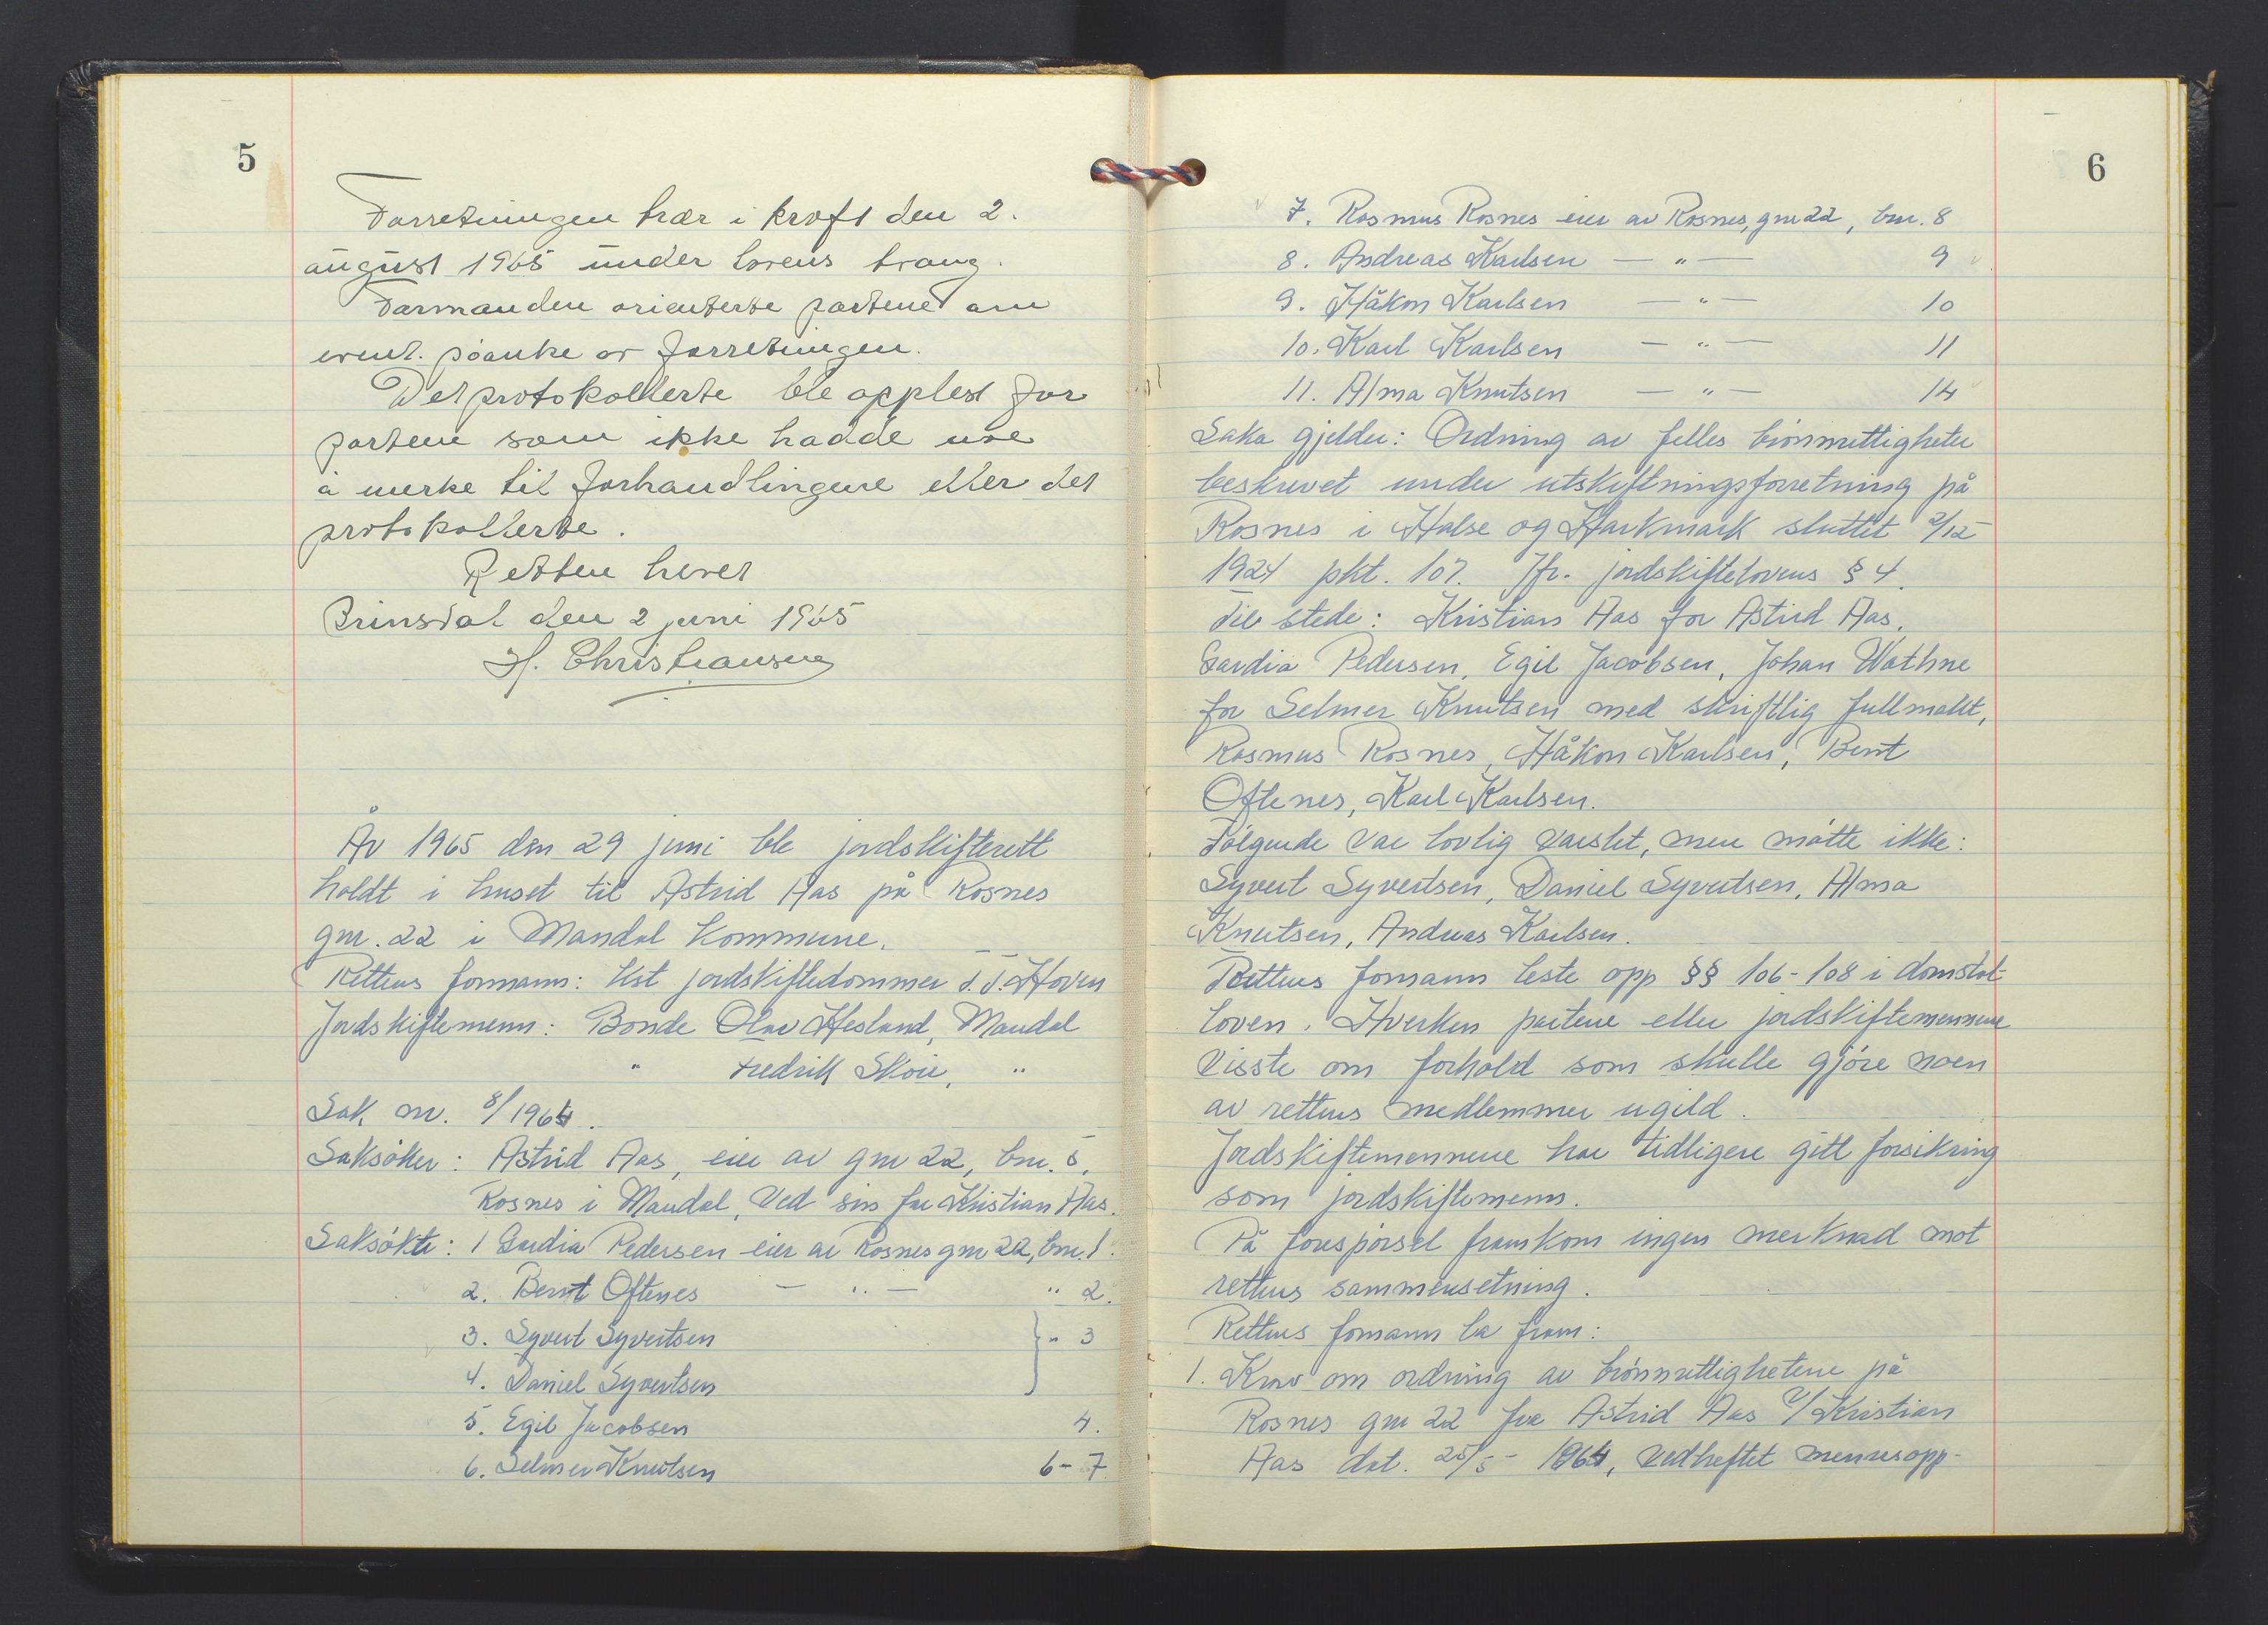 5
Forretningen trær i kraft den 2.
august 1965 under lovens tvang.
Formanden orienterte partene om
event. påanke av forretningen.
Det protokollerte ble opplest for
partene som ikke hadde noe
å merke til forhandlingene eller det
protokollerte.
Retten hevet
Brinsdal den 2 juni 1965
H. Christiansen
År 1965 den 29 juni ble jordskifterett
holdt i huset til Astrid Aas på Rosnes
gnr. 22 i Mandal kommune.
Rettens formann: Kst jordskiftedommer T. T. Hoven
Jordskiftemenn: Bonde Olav Hesland, Mandal
" Fredrik Skoie, "
Sak nr. 8/1964.
Saksøker: Astrid Aas, eier av gnr 22, bnr. 5,
Rosnes i Mandal, ved sin far Kristian Aas.
Saksøkte: 1 Gardia Pedersen eier av Rosnes gnr 22, bnr. 1.
2. Bernt Oftenes — " — " 2.
3. Syvert Syvertsen } " 3
4. Daniel Syvertsen
5. Egil Jacobsen 4.
6. Selmer Knutsen 6-7
6
7. Rasmus Rosnes eier av Rosnes, gnr 22, bnr. 8
8. Andreas Karlsen — " — 9
9. Håkon Karlsen — " — 10
10. Karl Karlsen — " — 11
11. Alma Knutsen — " — 14
Saka gjelder: Ordning av felles brønnrettigheter
beskrevet under utskiftningsforretning på
Rosnes i Halse og Harkmark sluttet 2/12
1924 pkt. 107. Jfr. jordskiftelovens § 4.
Til stede: Kristian Aas for Astrid Aas,
Gardia Pedersen, Egil Jacobsen, Johan Wathne
for Selmer Knutsen med skriftlig fullmakt,
Rasmus Rosnes, Håkon Karlsen, Bernt
Oftenes, Karl Karlsen.
Følgende var lovlig varslet, men møtte ikke:
Syvert Syvertsen, Daniel Syvertsen, Alma
Knutsen, Andreas Karlsen.
Rettens formann leste opp §§ 106-108 i domstol-
loven. Hverken partene eller jordskiftemennene
visste om forhold som skulle gjøre noen
av rettens medlemmer ugild.
Jordskiftemennene har tidligere gitt forsikring
som jordskiftemenn.
På forespørsel framkom ingen merknad mot
rettens sammensetning.
Rettens formann la fram:
1. Krav om ordning av brønnrettighetene på
Rosnes gnr 22 fra Astrid Aas v/ Kristian
Aas dat. 25/5 - 1964, vedheftet navneopp-